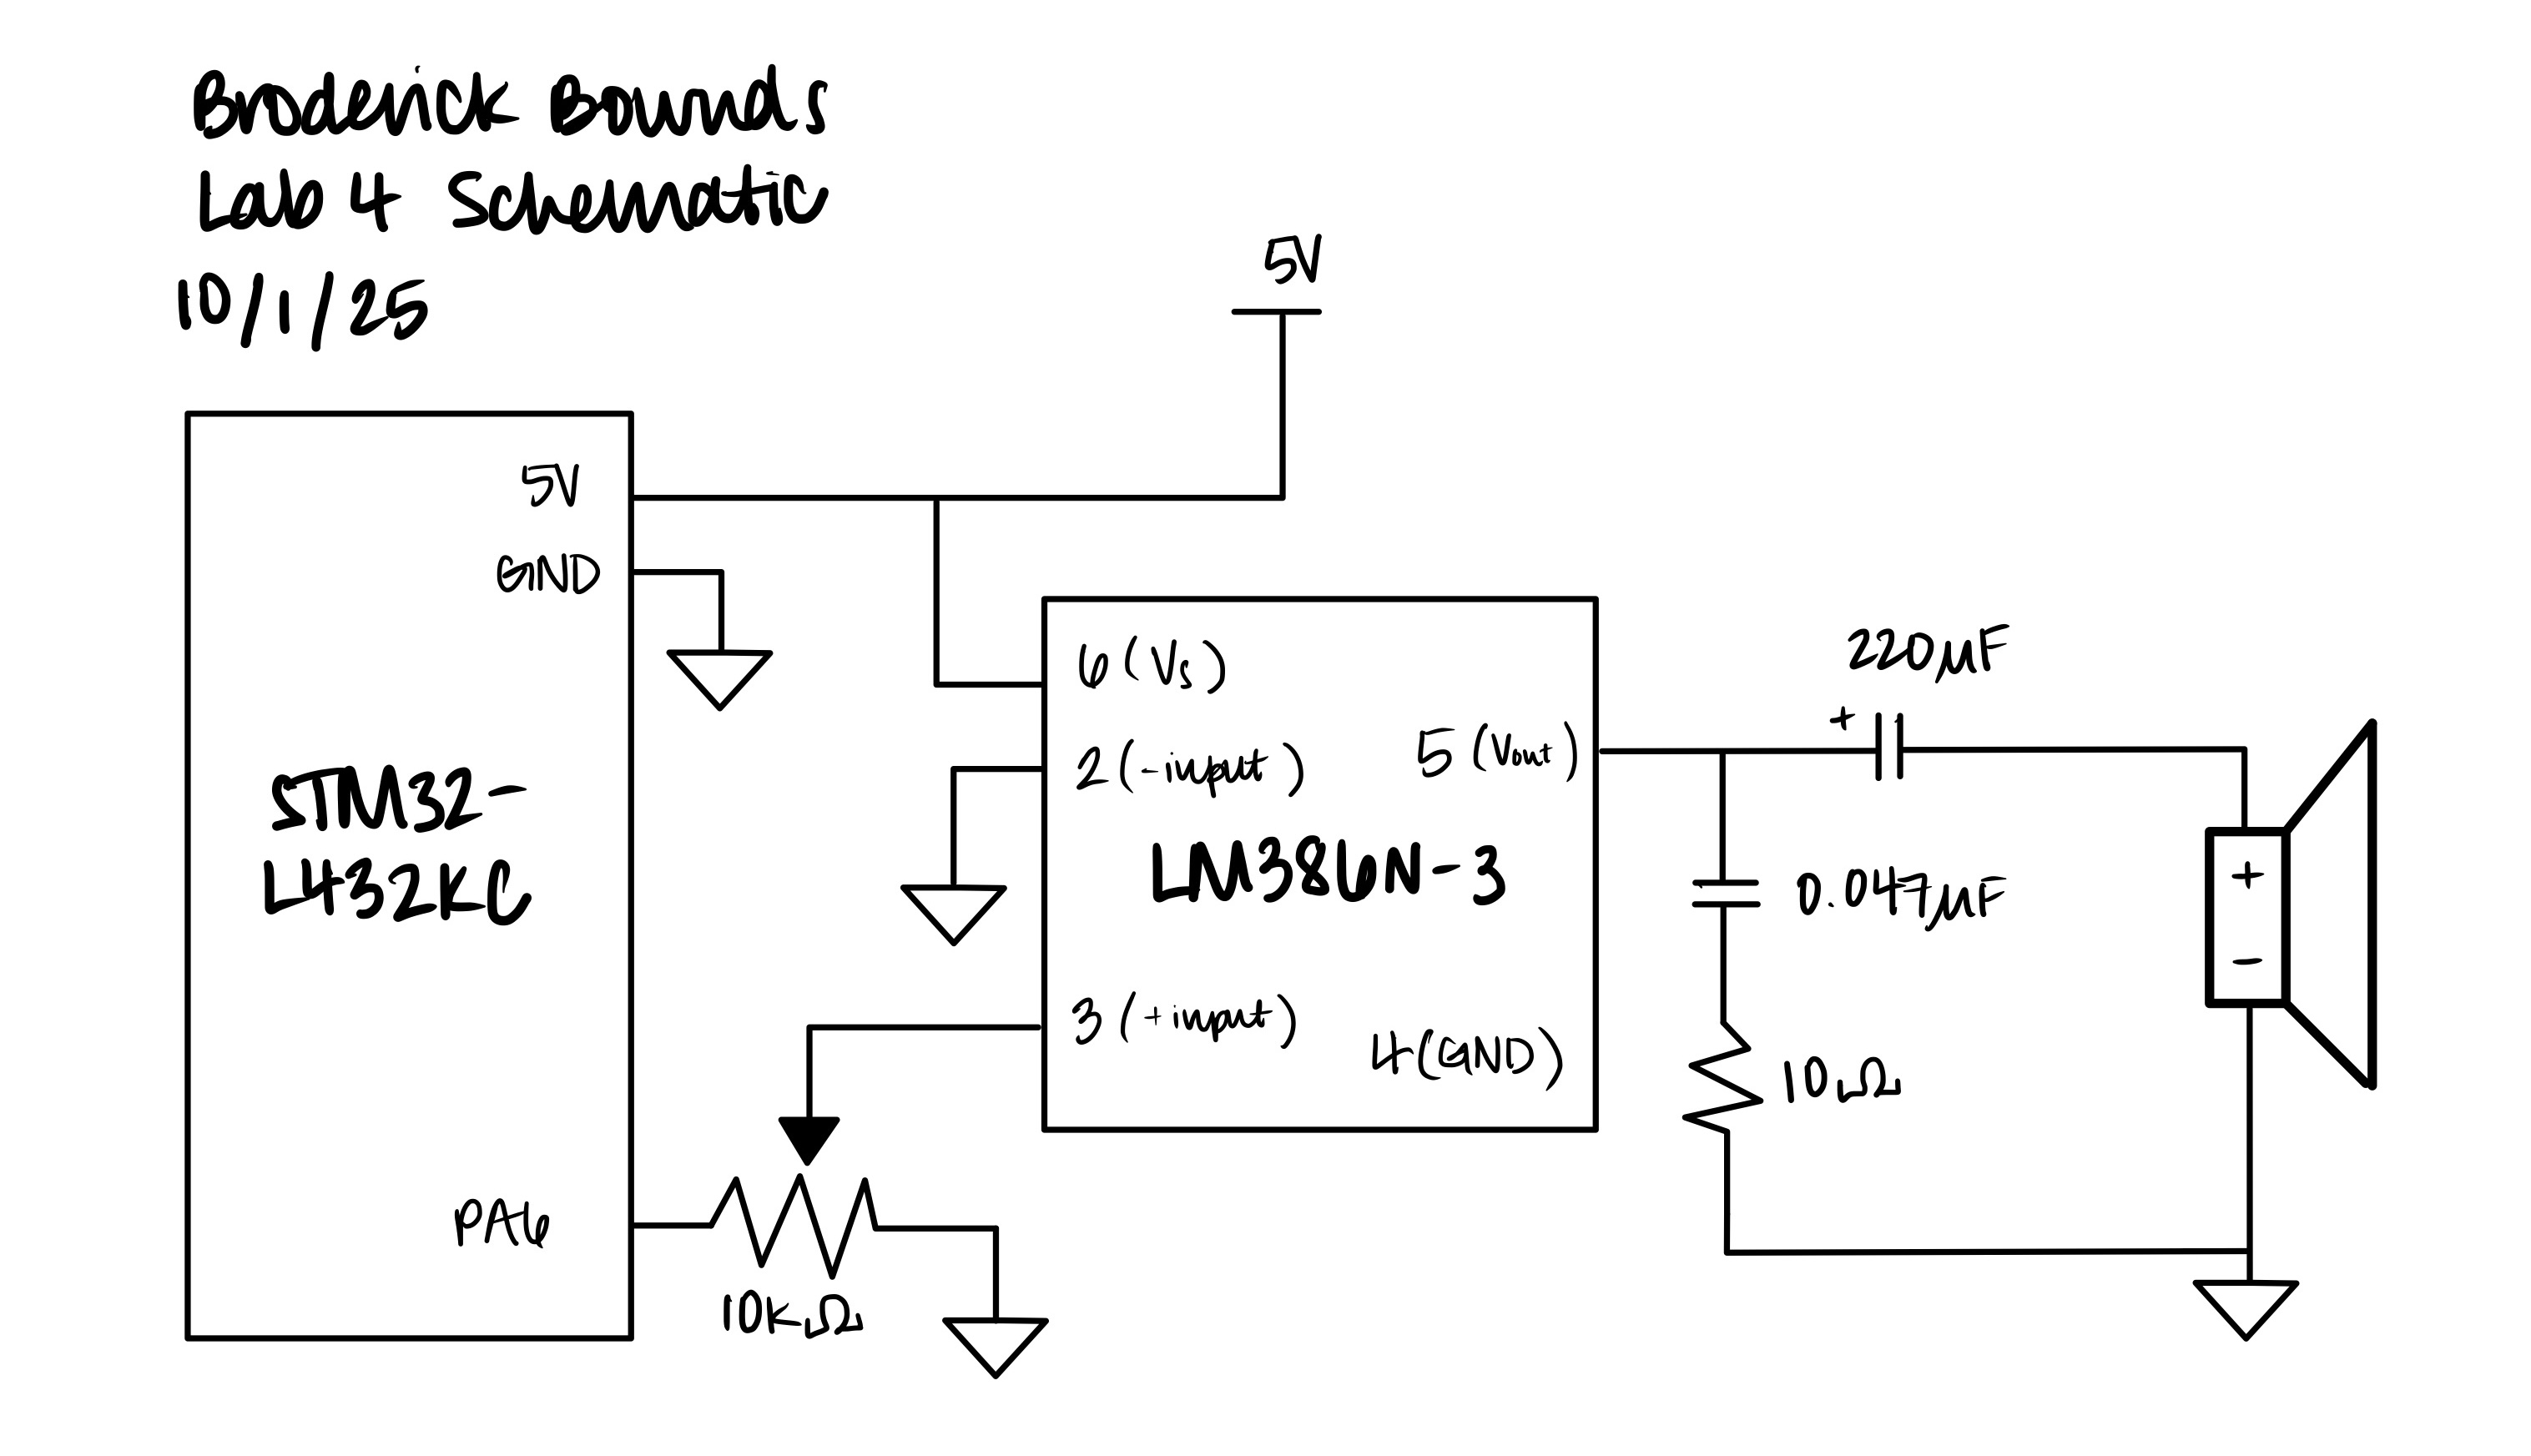 Broderick Bounds
Lab 4 Schematic
10/1/25
5V
5V
GND
STM32-
L432KC
PA6
10kΩ
6(Vs)
2(-input)
LM386N-3
3(+input)
5(Vout)
4(GND)
220μF
+
0.047μF
10Ω
+
-